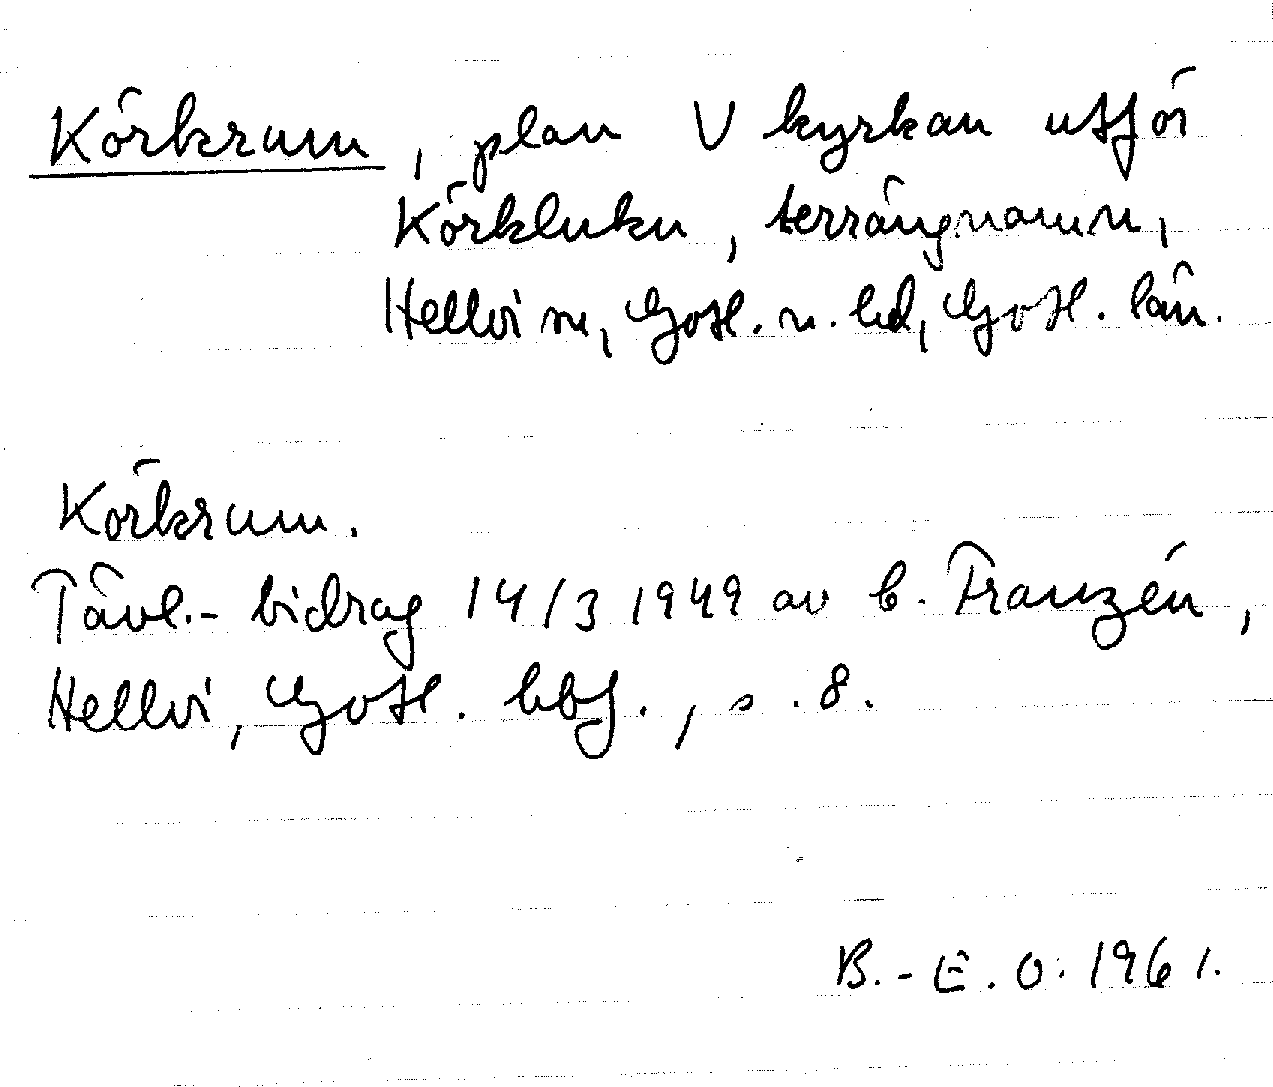 Körkrum, plan V kyrkan utför
Körkluku, terrängnamn,
Hellvi sn, Gotl. n. hd, Gotl. län.
Körkrum.
Tävl.- bidrag 14/3 1949 av C. Franzén,
Hellvi, Gotl. hbf., s. 8.
B.-E. O. 1961.